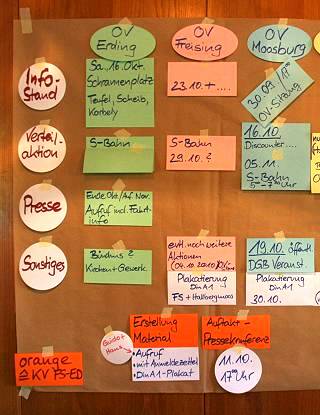 OV
Erding
OV
Freising
OV
Moosburg
Info-
Stand
Sa, 16. Okt.
Schrannenplatz
Teufel, Scheib,
Korbely
23.10. + ....
30.09./
OV-Sitzung
Verteil-
aktion
S-Bahn
S-Bahn
29.10. ?
16.10.
Discounter....
05.11.
S-Bahn
5⁰⁰-7³⁰ Uhr
Presse
Ende Okt./Anf. Nov.
Aufruf incl. Fahrt-
info
Sonstiges
Bündnis?
Kirchen + Gewerk.
evtl. noch weitere
Aktionen
Plakatierung
Din A1
FS + Hallbergmoos
19.10. öffentl.
DGB Veranst.
Plakatierung
Din A1
30.10.
Erstellung
Material
• Aufruf
• mit Anmeldezettel
• Din A1-Plakat
Guido +
Hans
Auftakt-
Pressekonferenz
11.10.
17⁰⁰ Uhr
orange
≙ KV FS-ED